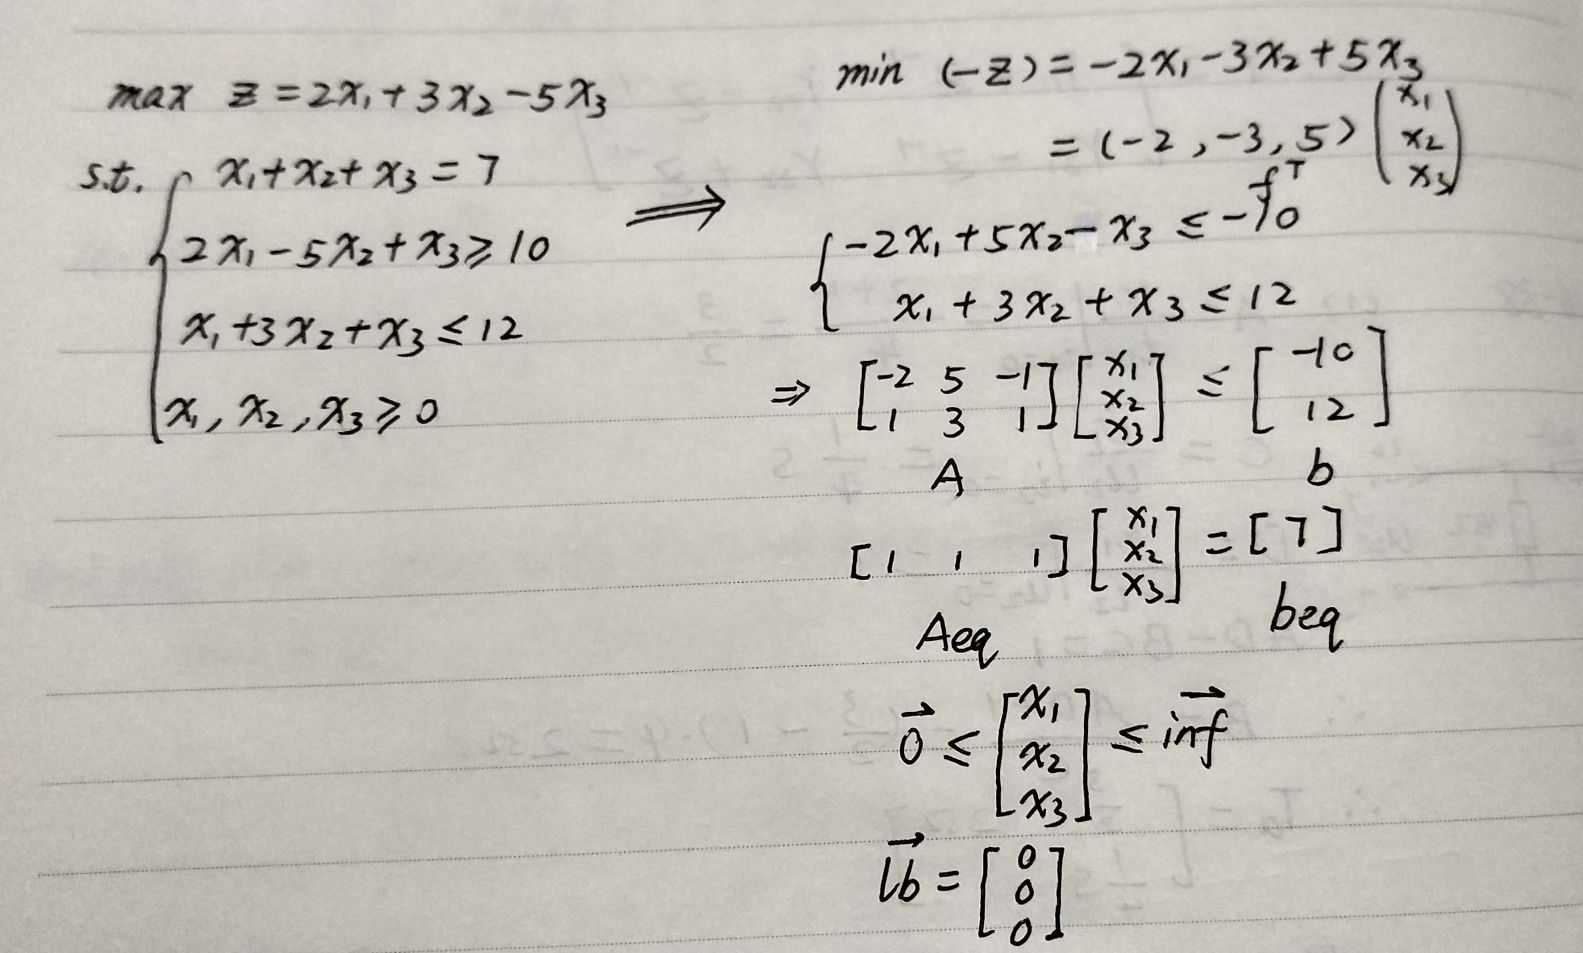 max z = 2x₁ + 3x₂ - 5x₃
s.t. { x₁ + x₂ + x₃ = 7
2x₁ - 5x₂ + x₃ ≥ 10
x₁ + 3x₂ + x₃ ≤ 12
x₁, x₂, x₃ ≥ 0
⟹
min (-z) = -2x₁ - 3x₂ + 5x₃
= (-2, -3, 5) (x₁ x₂ x₃)
fᵀ
{ -2x₁ + 5x₂ - x₃ ≤ -10
x₁ + 3x₂ + x₃ ≤ 12
⇒ [-2 5 -1; 1 3 1] [x₁; x₂; x₃] ≤ [-10; 12]
A b
[1 1 1] [x₁; x₂; x₃] = [7]
Aeq beq
0⃗ ≤ [x₁; x₂; x₃] ≤ inf⃗
lb⃗ = [0; 0; 0]